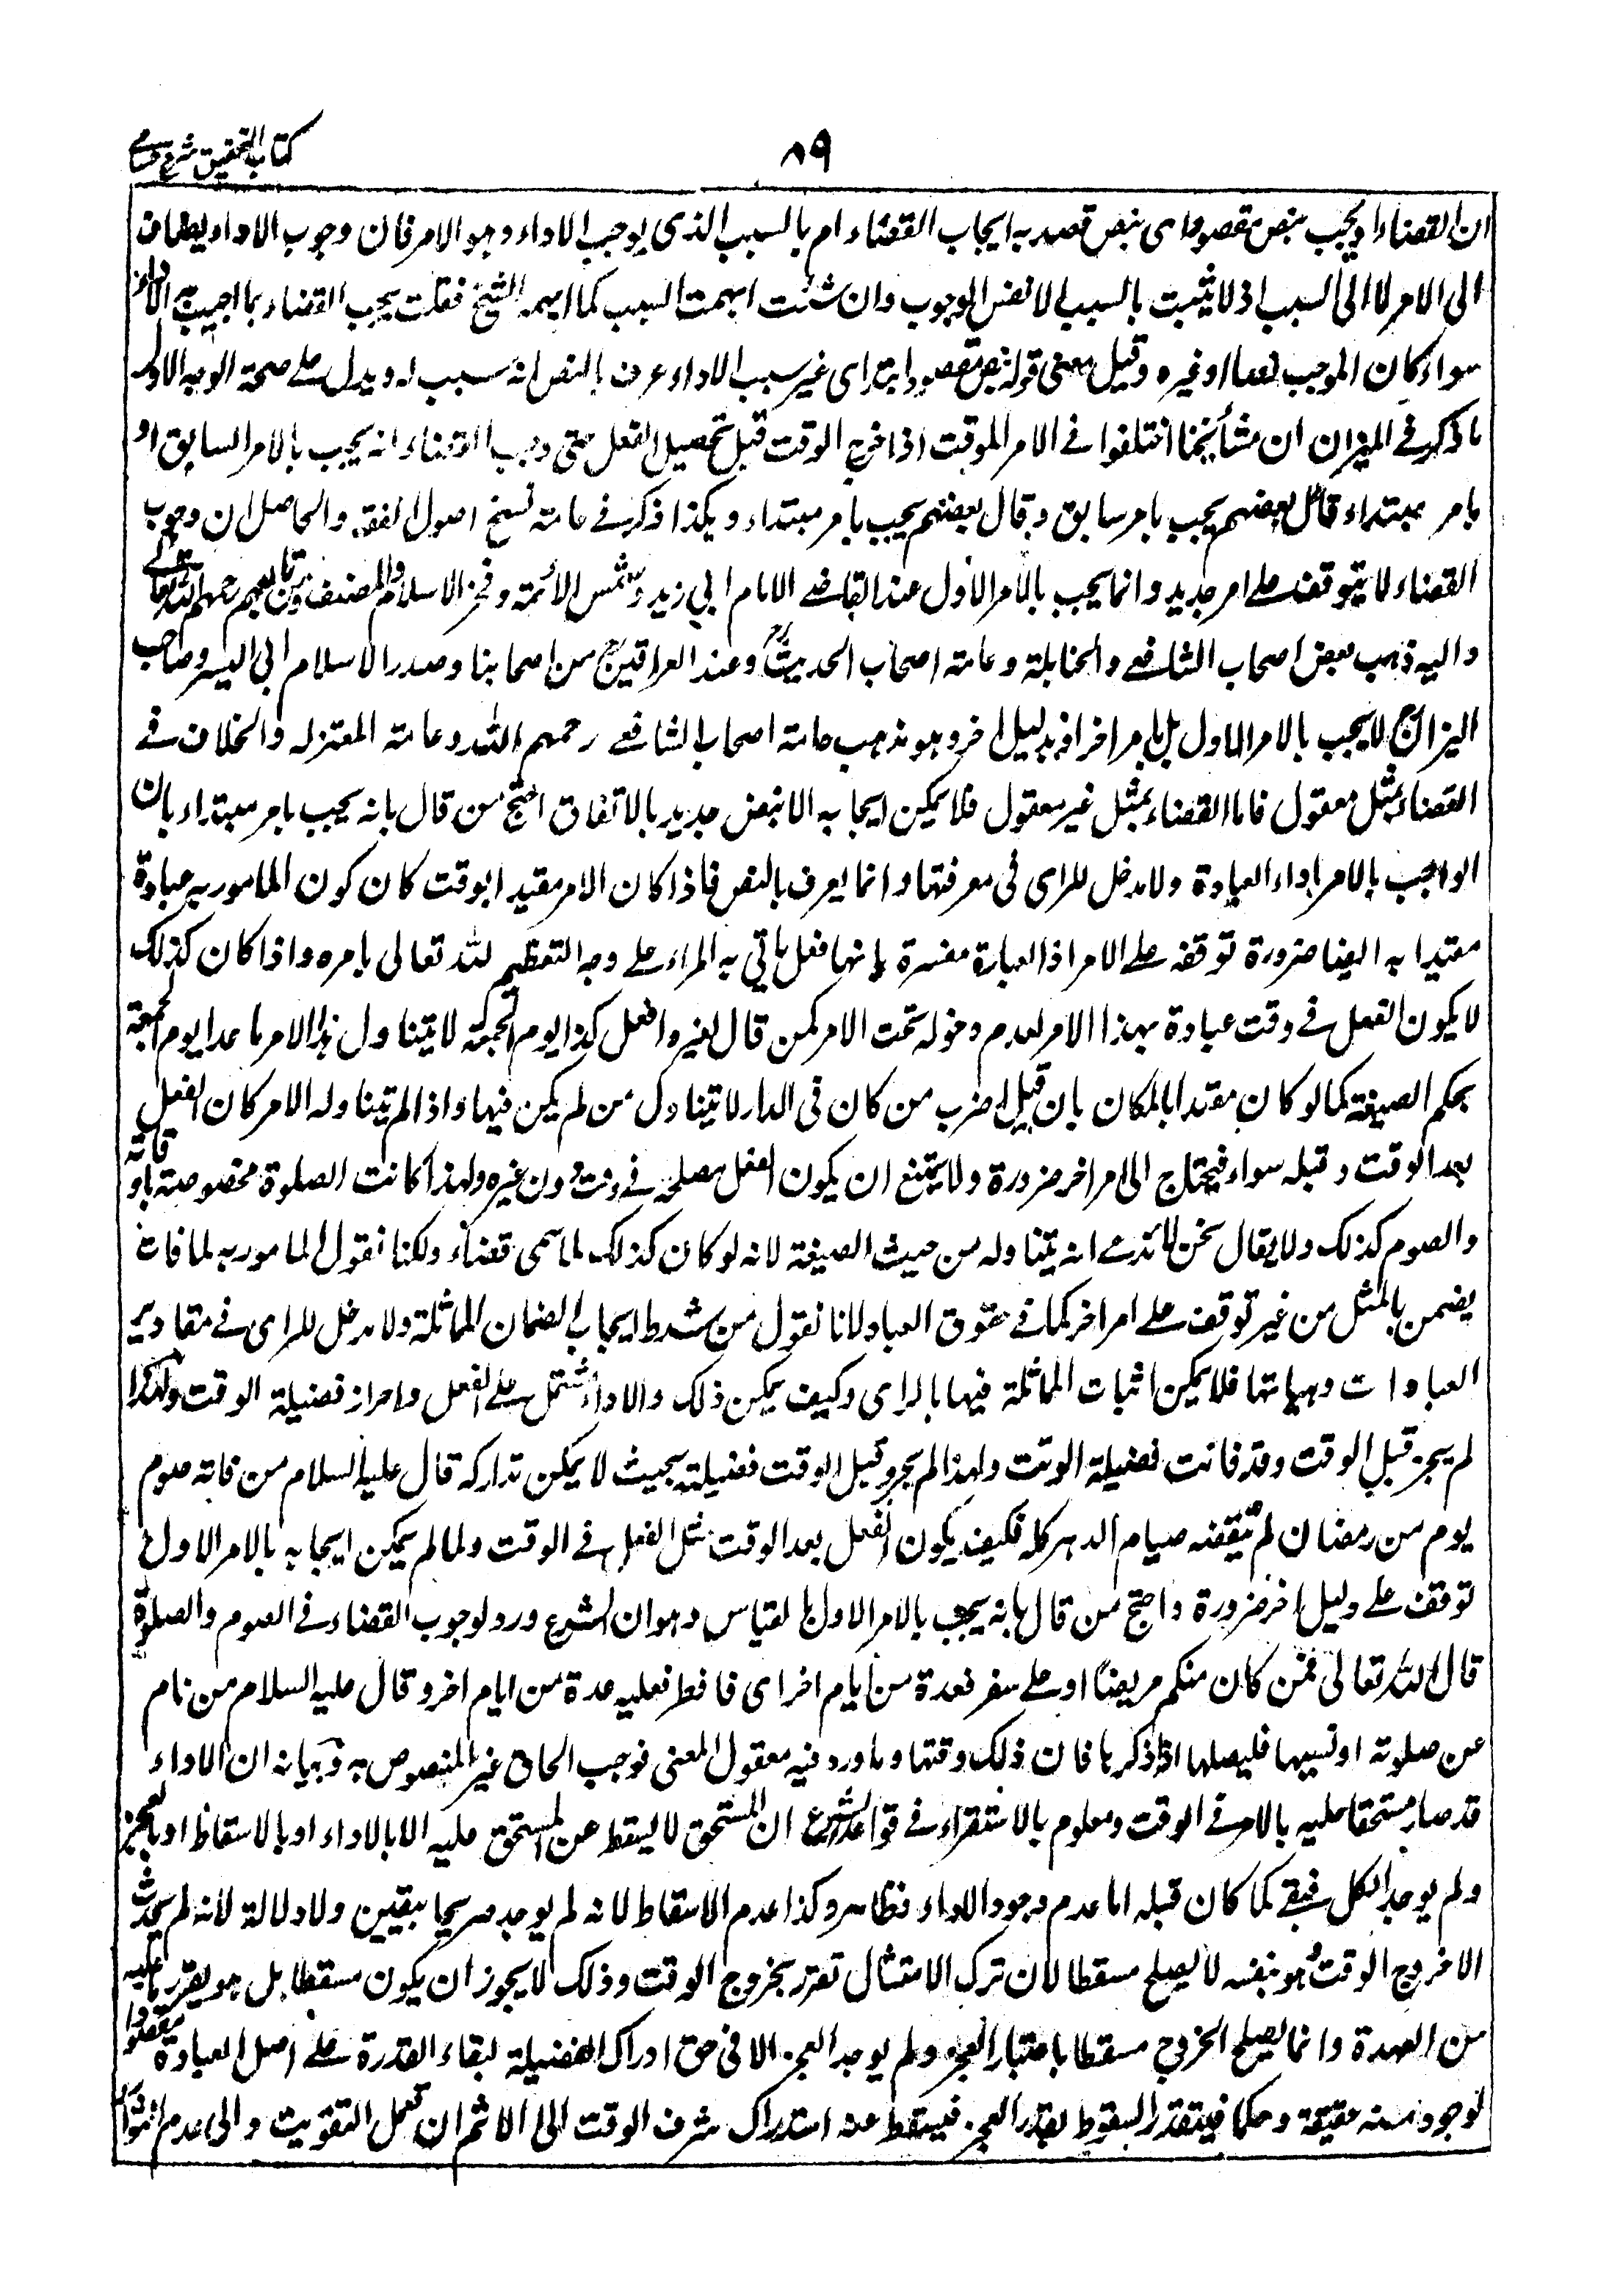 ٨٩
كتاب التحقيق شرح حسامى
ان القضاء ايجب بنص مقصود اى بنص قصد به ايجاب القضاء ام بالسبب الذى يوجب الاداء وهو الامر فان وجوب الاداء يضاف
الى الامر لا الى السبب اذ لا يثبت بالسبب الا نفس الوجوب وان شئت ابهمت السبب كما ابهمه الشيخ فقلت يجب القضاء بما يجب به الاداء
سواء كان الموجب نصا او غيره وقيل معنى قوله بنص مقصود اى غير سبب الاداء عرف بالنص انه سبب له ويدل على صحة الوجه الاول
ما ذكر فى الميزان ان مشائخنا اختلفوا فى الامر الموقت اذا خرج الوقت قبل تحصيل الفعل حتى وجب القضاء انه يجب بالامر السابق او
بامر مبتداء قال بعضهم يجب بامر سابق وقال بعضهم يجب بامر مبتداء وهكذا ذكر فى عامة نسخ اصول الفقه والحاصل ان وجوب
القضاء لا يتوقف على امر جديد وانما يجب بالامر الاول عند القاضى الامام ابى زيد وشمس الائمة وفخر الاسلام والمصنف ومن تابعهم رحمهم الله تعالى
واليه ذهب بعض اصحاب الشافعى والحنابلة وعامة اصحاب الحديث وعند العراقيين من اصحابنا وصدر الاسلام ابى اليسر وصاحب
الميزان لا يجب بالامر الاول بل بامر اخر او بدليل اخر وهو مذهب عامة اصحاب الشافعى رحمهم الله وعامة المعتزله والخلاف فى
القضاء بمثل معقول فاما القضاء بمثل غير معقول فلا يمكن ايجابه الا بنص جديد بالاتفاق احتج من قال بانه يجب بامر مبتداء بان
الواجب بالامر اداء العبادة ولا مدخل للراى فى معرفتها وانما يعرف بالنص فاذا كان الامر مقيدا بوقت كان كون المامور به عبادة
مقيدا به ايضا ضرورة توقفه على الامر اذ العبارة مفسرة بانها فعل ياتى به المراء على وجه التعظيم لله تعالى بامره واذا كان كذلك
لا يكون الفعل فى وقت عبادة بهذا الامر لعدم دخوله تحت الامر كمن قال لغيره افعل كذا يوم الجمعة لا يتناول هذا الامر ما عدا يوم الجمعة
بحكم الصيغة كما لو كان مقيدا بالمكان بان قيل اضرب من كان فى الدار لا يتناول من لم يكن فيها واذا لم يتناوله الامر كان الفعل
بعد الوقت وقبله سواء فيحتاج الى امر اخر ضرورة ولا يمتنع ان يكون الفعل مصلحة فى وقت دون غيره ولهذا كانت الصلوة مخصوصة باوقاته
والصوم كذلك ولا يقال نحن لا ندعى انه يتناوله من حيث الصيغة لانه لو كان كذلك لما سمى قضاء ولكنا نقول المامور به لما فات
يضمن بالمثل من غير توقف على امر اخر كما فى حقوق العباد لانا نقول من شرط ايجاب الضمان المماثلة ولا مدخل للراى فى مقادير
العبادات وهيأتها فلا يمكن اثبات المماثلة فيها بالراى وكيف يمكن ذلك والاداء مشتمل على الفعل واحراز فضيلة الوقت ولهذا
لم يجز قبل الوقت وقد فاتت فضيلة الوقت ولهذا لم يجز قبل الوقت فضيلته بحيث لا يمكن تداركه قال عليه السلام من فاته صوم
يوم من رمضان لم يقضه صيام الدهر كله فكيف يكون الفعل بعد الوقت مثل الفعل فى الوقت ولما لم يمكن ايجابه بالامر الاول
توقف على دليل اخر ضرورة واحتج من قال بانه يجب بالامر الاول بالقياس وهو ان الشرع ورد لوجوب القضاء فى الصوم والصلوة
قال الله تعالى فمن كان منكم مريضا او على سفر فعدة من ايام اخر اى فافطر فعليه عدة من ايام اخر وقال عليه السلام من نام
عن صلوته او نسيها فليصلها اذا ذكرها فان ذلك وقتها وما ورد فيه معقول المعنى فوجب الحاق غير المنصوص به وبيانه ان الاداء
قد صار مستحقا عليه بالامر فى الوقت ومعلوم بالاستقراء فى قواعد الشرع ان المستحق لا يسقط عن المستحق عليه الا بالاداء او بالاسقاط او بالعجز
ولم يوجد الكل فبقى كما كان قبله اما عدم وجود الاداء فظاهر وكذا عدم الاسقاط لانه لم يوجد صريحا بيقين ولا دلالة لانه لم يحدث
الا خروج الوقت وهو بنفسه لا يصلح مسقطا لان ترك الامتثال تقرر بخروج الوقت وذلك لا يجوز ان يكون مسقطا بل هو يقرر ما عليه
من العهدة وانما يصلح الخروج مسقطا باعتبار العجز ولم يوجد العجز الا فى حق ادراك الفضيلة لبقاء القدرة على اصل العبادة مقصودا
لوجود منه حقيقة وحكما فيتقدر السقوط بقدر العجز فيسقط عنه استدراك شرف الوقت الى الاثم ان تعمل التفويت والى عدم الثواب